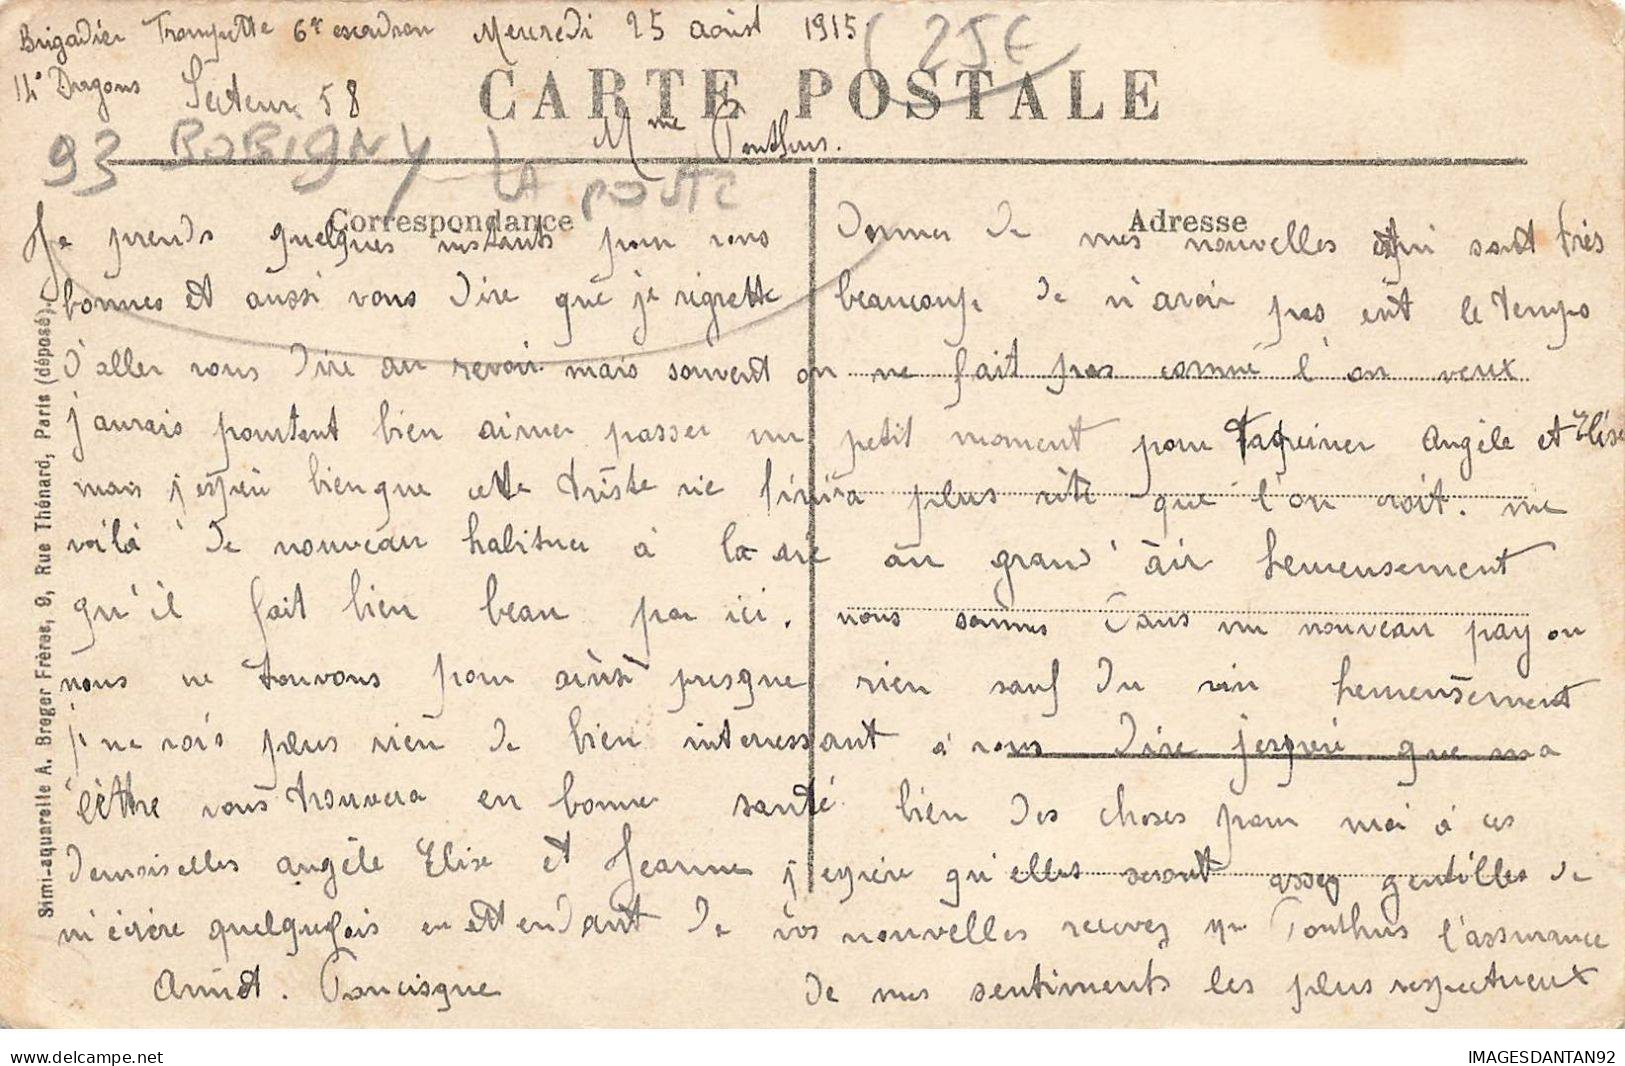 Brigadier Trompette 6e escadron Mercredi 25 août 1915
14e Dragons Secteur 58
25 €
CARTE POSTALE
Mme Ponthus.
93 BOBIGNY LA POSTE
Correspondance Adresse
Je prends quelques instants pour vous donner de mes nouvelles qui sont très
bonnes et aussi vous dire que je regrette beaucoup de n'avoir pas eut le temps
d'aller vous dire au revoir mais souvent on ne fait pas comme l'on veux
j'aurais pourtant bien aimer passer un petit moment pour Taquiner Angèle et Elise
mais j'espère bien que cette triste vie finira plus vite que l'on croit. me
voilà de nouveau habituer à la vie au grand air heureusement
qu'il fait bien beau par ici. nous sommes dans un nouveau pay ou
nous ne trouvons pour ainsi presque rien sauf du vin heureusement
je ne vois plus rien de bien interressant à vous dire j'espère que ma
lettre vous trouvera en bonne santé bien des choses pour moi à ces
demoiselles angèle Elise et Jeanne j'espère qu'elles seront assez gentilles de
m'écrire quelquefois en attendant de vos nouvelles recevez Mme Ponthus l'assurance
de mes sentiments les plus respectueux
Francisque
Simi-aquarelle A. Breger Frères, 9, Rue Thénard, Paris (déposé).
www.delcampe.net IMAGESDANTAN92